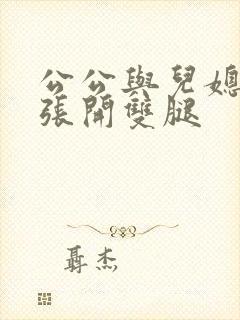 公公與兒媳
張開雙腿
聶杰